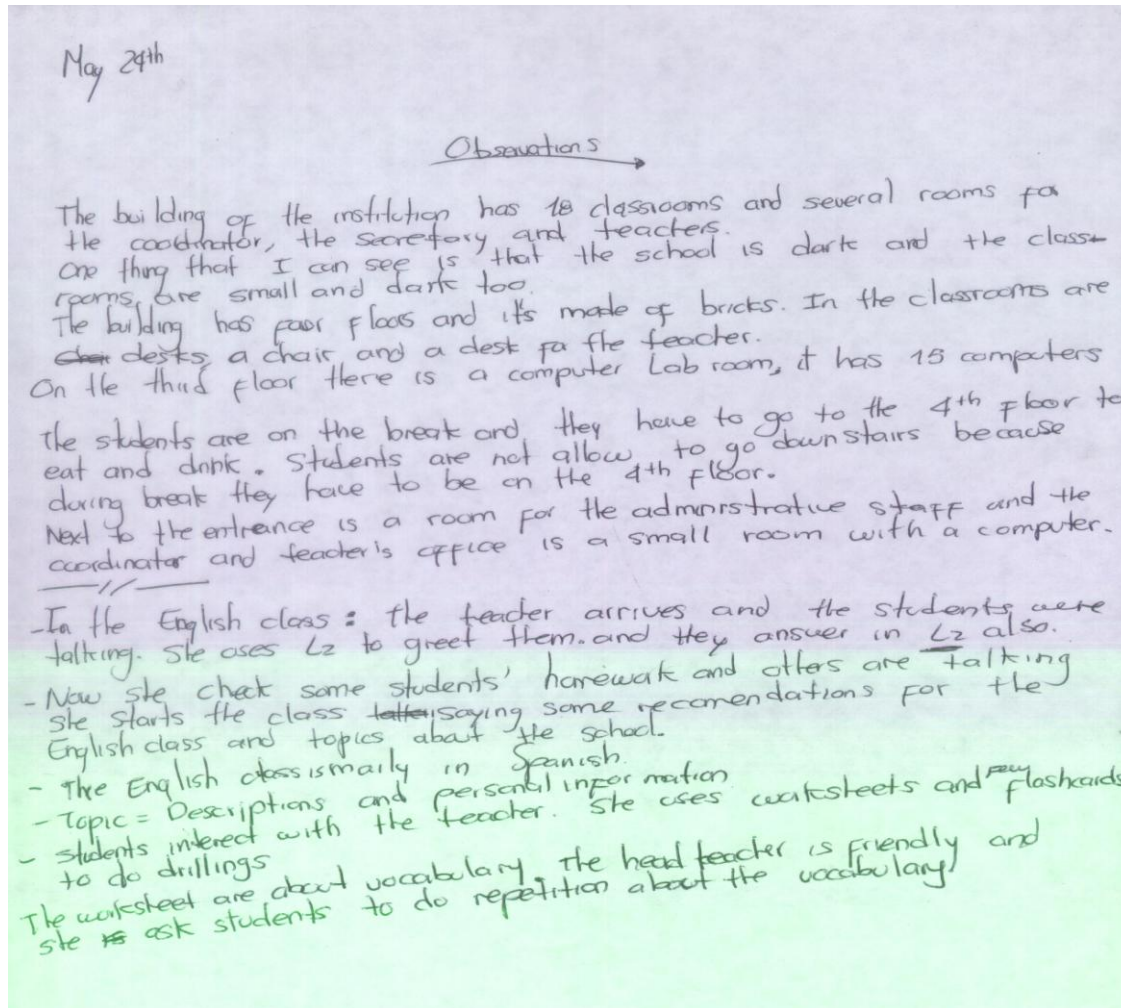 May 24th
Observations
The building of the institution has 18 classrooms and several rooms for
the coordinator, the secretary and teachers.
One thing that I can see is that the school is dark and the class-
rooms, are small and dark too.
The building has four floors and it's made of bricks. In the classrooms are
desks, a chair, and a desk for the teacher.
On the third floor there is a computer Lab room, it has 15 computers
The students are on the break and they have to go to the 4th floor to
eat and drink. Students are not allow to go downstairs because
during break they have to be on the 4th floor.
Next to the entrance is a room for the administrative staff and the
coordinator and teacher's office is a small room with a computer.
-In the English class: the teacher arrives and the students were
talking. She uses L2 to greet them. and they answer in L2 also.
- Now she check some students' homework and others are talking
she starts the class saying some recomendations for the
English class and topics about the school.
- The English class is maily in Spanish.
- Topic = Descriptions and personal information
- Students interect with the teacher. She uses worksheets and few flashcards
to do drillings
The worksheet are about vocabulary. The head teacher is friendly and
she ask students to do repetition about the vocabulary.